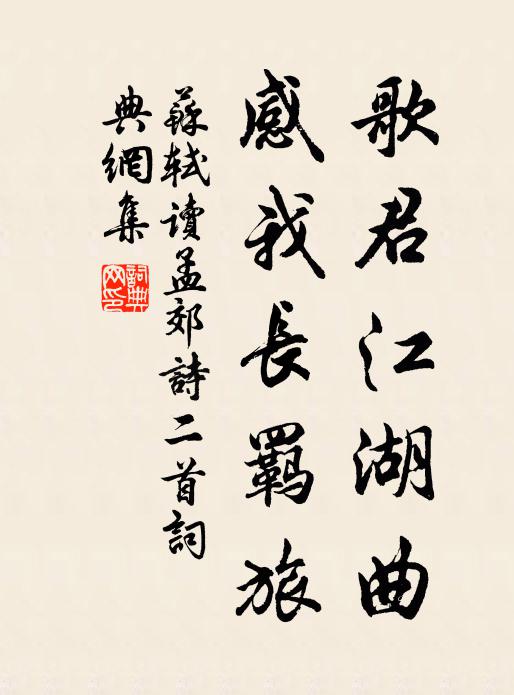 歌君江湖曲
感我長羈旅
蘇軾讀孟郊詩二首詞
典網集
詞典网印